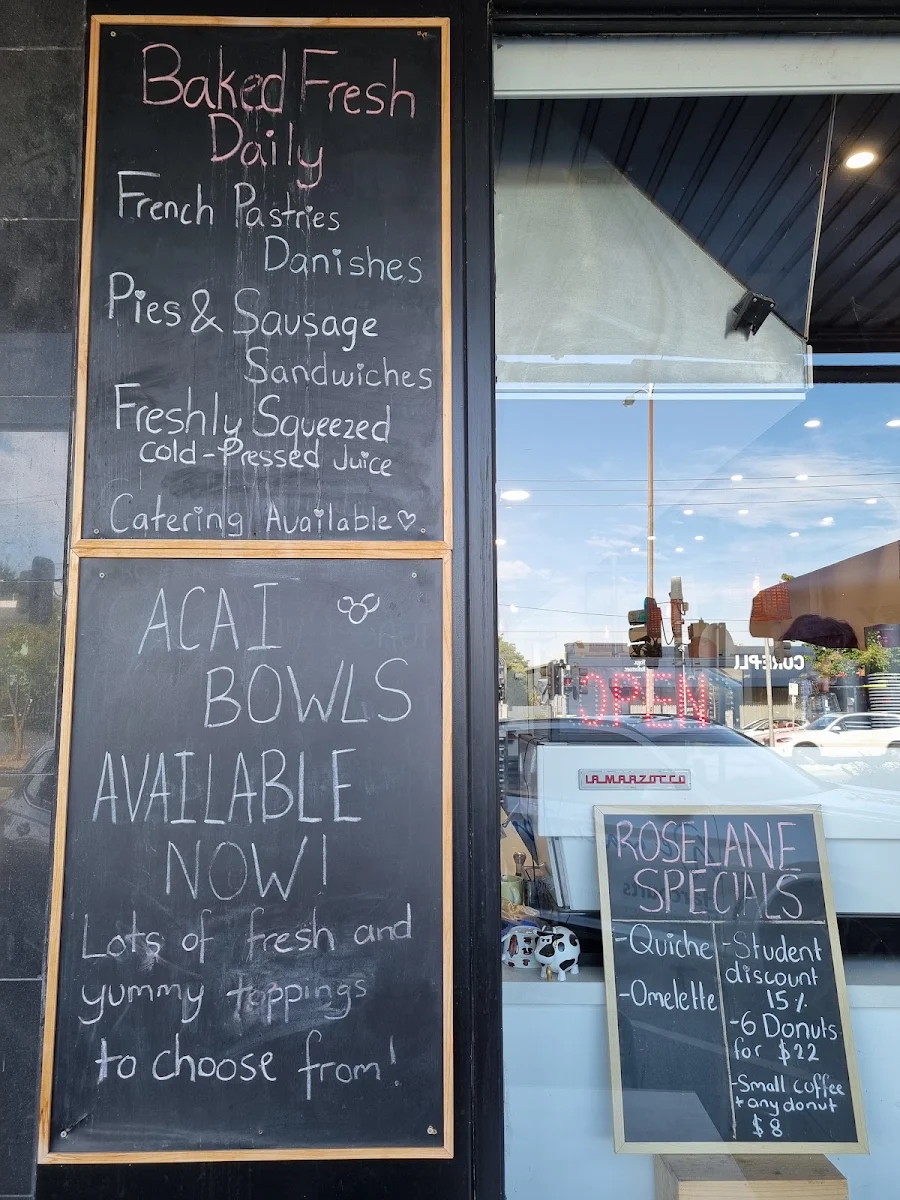 Baked Fresh
Daily
French Pastries
Danishes
Pies & Sausage
Sandwiches
Freshly Squeezed
cold-Pressed Juice
Catering Available♡
ACAI
BOWLS
AVAILABLE
NOW!
Lots of fresh and
yummy toppings
to choose from!
OPEN
LA MARZOCCO
ROSELANE
SPECIALS
-Quiche
-Omelette
-Student
discount
15%
-6 Donuts
for $22
-Small coffee
+ any donut
$8